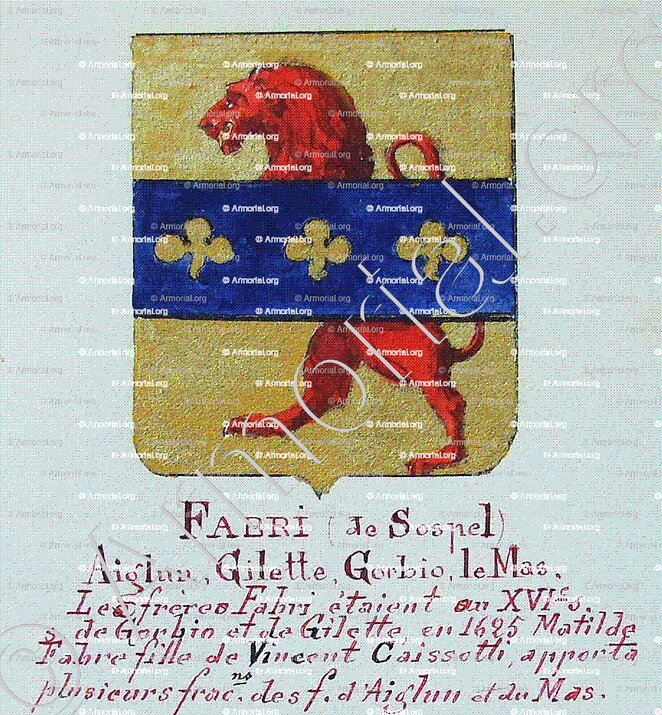 FABRI (de Sospel)
Aiglun, Gilette, Gorbio, le Mas.
Les frères Fabri étaient au XVIme s.
s. de Gorbio et de Gilette en 1625 Matilde
Fabre fille de Vincent Caissotti, apporta
plusieurs frac.ns des f. d'Aiglun et du Mas.
© Armorial.org